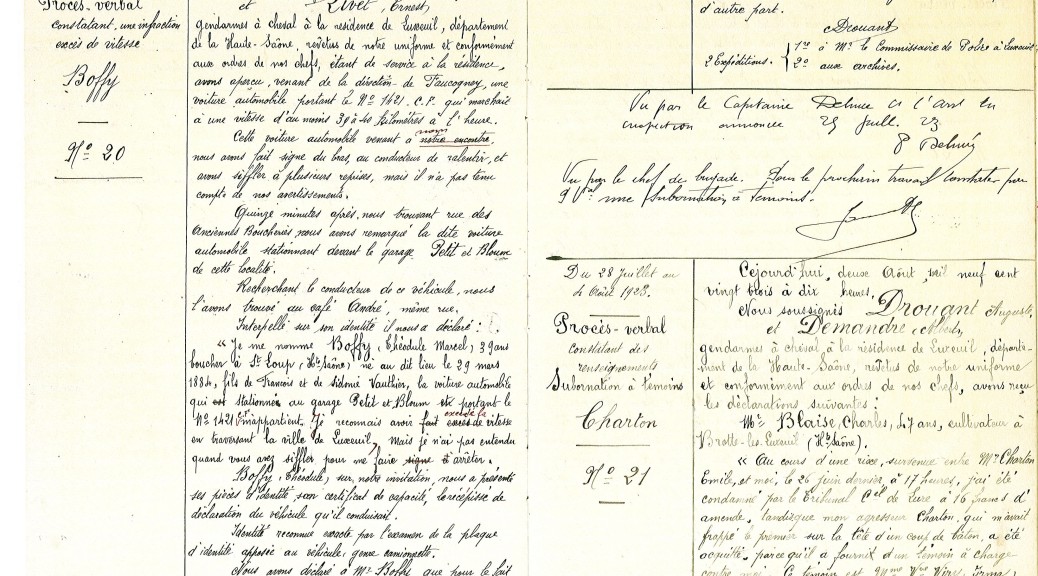 Procès-verbal
constatant une infraction
excès de vitesse
Boffy
Nº 20
et Livet, Ernest
gendarmes à cheval à la résidence de Luxeuil, département
de la Haute-Saône, revêtus de notre uniforme et conformément
aux ordres de nos chefs, étant de service à la résidence,
avons aperçu, venant de la direction de Faucogney, une
voiture automobile portant le Nº 1421. C.F. qui marchait
à une vitesse d'au moins 38 à 40 kilomètres à l'heure.
Cette voiture automobile venant à notre encontre,
nous avons fait signe du bras, au conducteur de ralentir, et
avons siffler à plusieurs reprises, mais il n'a pas tenu
compte de nos avertissements.
Quinze minutes après, nous trouvant rue des
Anciennes Boucheries nous avons remarqué la dite voiture
automobile stationnant devant le garage Petit et Bloum
de cette localité.
Recherchant le conducteur de ce véhicule, nous
l'avons trouvé au café André, même rue.
Interpellé sur son identité il nous a déclaré :
« Je me nomme Boffy, Théodule Marcel, 39 ans
boucher à St Loup, (Hte Saône) né au dit lieu le 29 mars
1884, fils de François et de Sidonie Vauthier, la voiture automobile
qui est stationnée au garage Petit et Bloum et portant le
Nº 1421 m'appartient. Je reconnais avoir fait excès de vitesse
en traversant la ville de Luxeuil, Mais je n'ai pas entendu
quand vous avez siffler pour me faire signe d'arrêter.
Boffy, Théodule, sur notre invitation, nous a présenté
ses pièces d'identité son certificat de capacité, le récépissé de
déclaration du véhicule qu'il conduisait.
Identité reconnue exacte par l'examen de la plaque
d'identité apposée au véhicule, genre camionnette.
Nous avons déclaré à Mr Boffy que pour le fait
d'autre part.
Drouant
2 Expéditions. 1re à Mr le Commissaire de Police à Luxeuil.
2º aux archives.
Vu par le Capitaine Delmée
inspection annoncée 25 Juill. 23
Vu par le chef de brigade. Dans le prochain travail constater par
une Subornation de témoins.
Du 28 Juillet au
4 Août 1923.
Procès-verbal
constatant des
renseignements
Subornation de témoins
Charton
Nº 21
Cejourd'hui, deux Août, mil neuf cent
vingt trois à dix heures,
Nous soussignés Drouant Auguste,
et Demandre, Albert,
gendarmes à cheval à la résidence de Luxeuil, départe-
ment de la Haute-Saône, revêtus de notre uniforme
et conformément aux ordres de nos chefs, avons reçu
les déclarations suivantes :
Mr Blaise, Charles, 47 ans, cultivateur à
Brotte-les-Luxeuil (Hte Saône).
« Au cours d'une rixe, survenue entre Mr Charton
Emile, et moi, le 26 juin dernier, à 17 heures, j'ai été
condamné par le Tribunal Cel de Lure à 16 francs d'
amende, tandisque mon agresseur Charton, qui m'avait
frappé le premier sur la tête d'un coup de bâton, a été
acquitté, parce qu'il a fournit d'un témoin à charge
contre moi. Ce témoin est Mme Vve Viry, Irma,